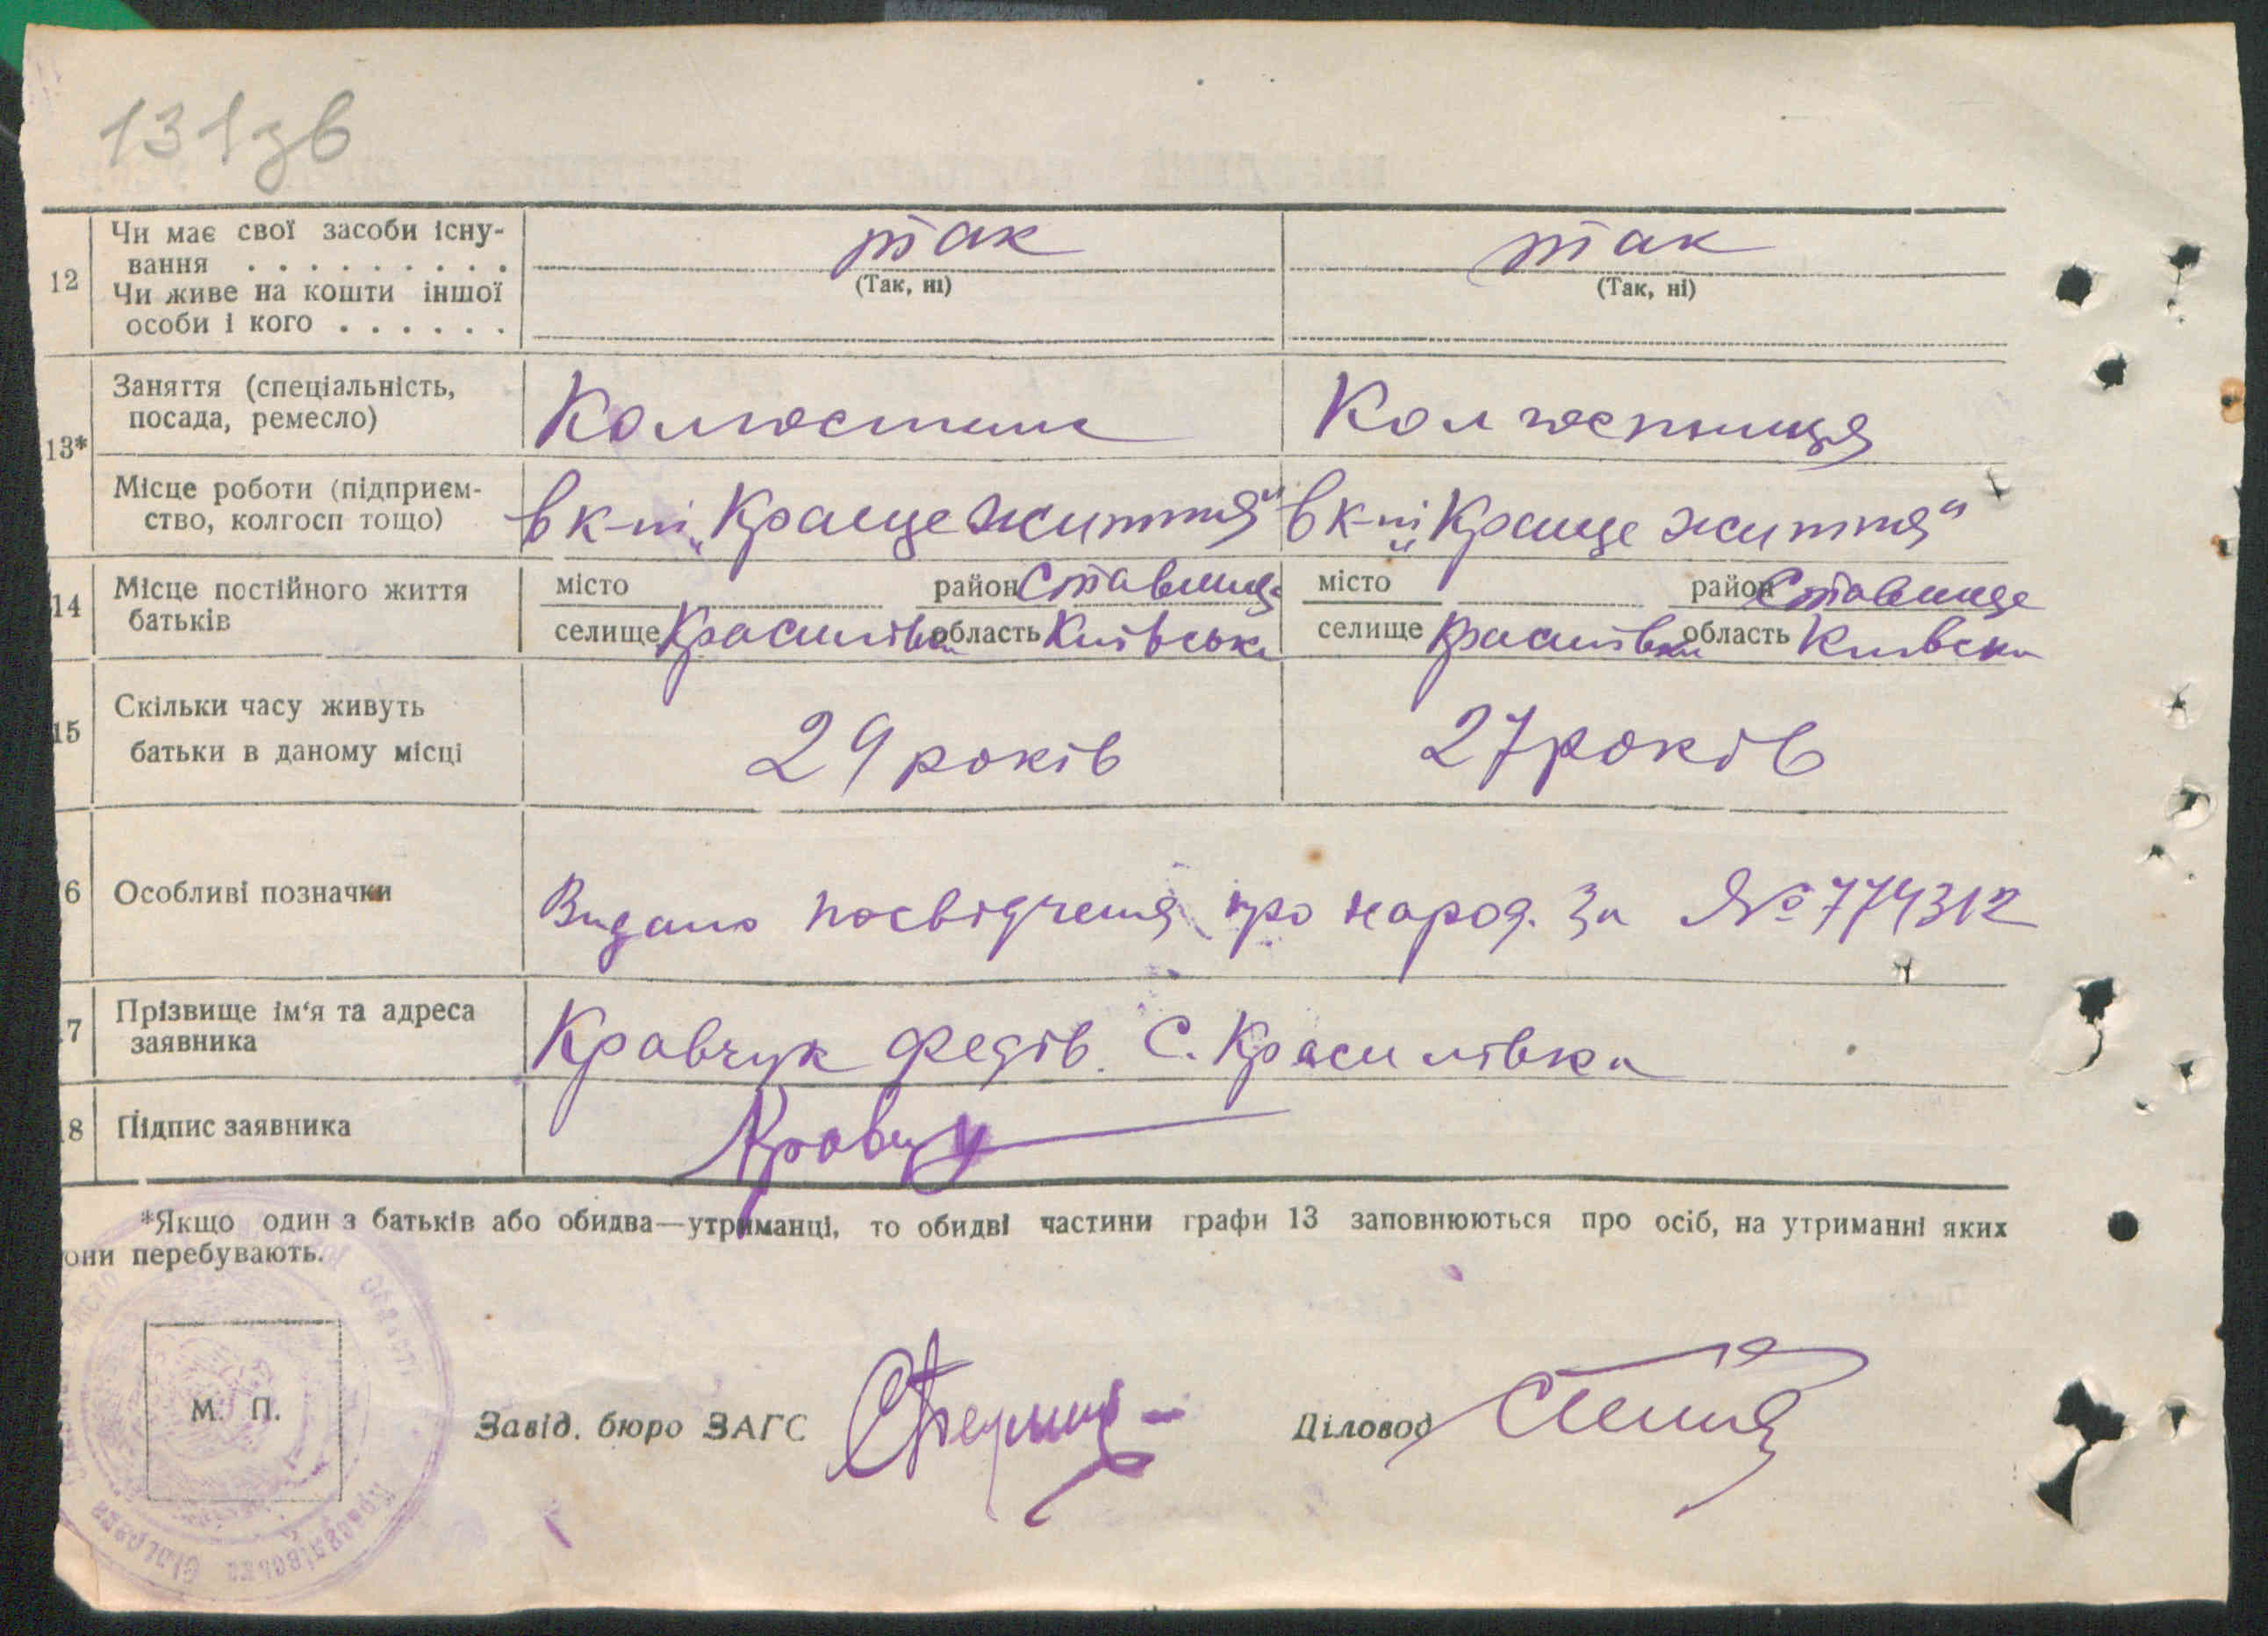 131зв
12 Чи має свої засоби існу- так так
вання . . . . . . . . . (Так, ні) (Так, ні)
Чи живе на кошти іншої
особи і кого . . . . . .
13* Заняття (спеціальність,
посада, ремесло) Колгоспник Колгоспниця
Місце роботи (підприєм-
ство, колгосп тощо) в к-пі „Краще життя" в к-пі „Краще життя"
14 Місце постійного життя місто район Ставище місто район Ставище
батьків селище Красилівка область Київська селище Красилівка область Київська
15 Скільки часу живуть
батьки в даному місці 29 років 27 років
6 Особливі позначки Видано посвідченя про народ. За № 774312
7 Прізвище ім'я та адреса
заявника Кравчук Федів. С. Красилівка
8 Підпис заявника Кравчу
*Якщо один з батьків або обидва—утриманці, то обидві частини графи 13 заповнюються про осіб, на утриманні яких
они перебувають.
М. П. Завід. бюро ЗАГС Діловод
Красилівська Сільрада